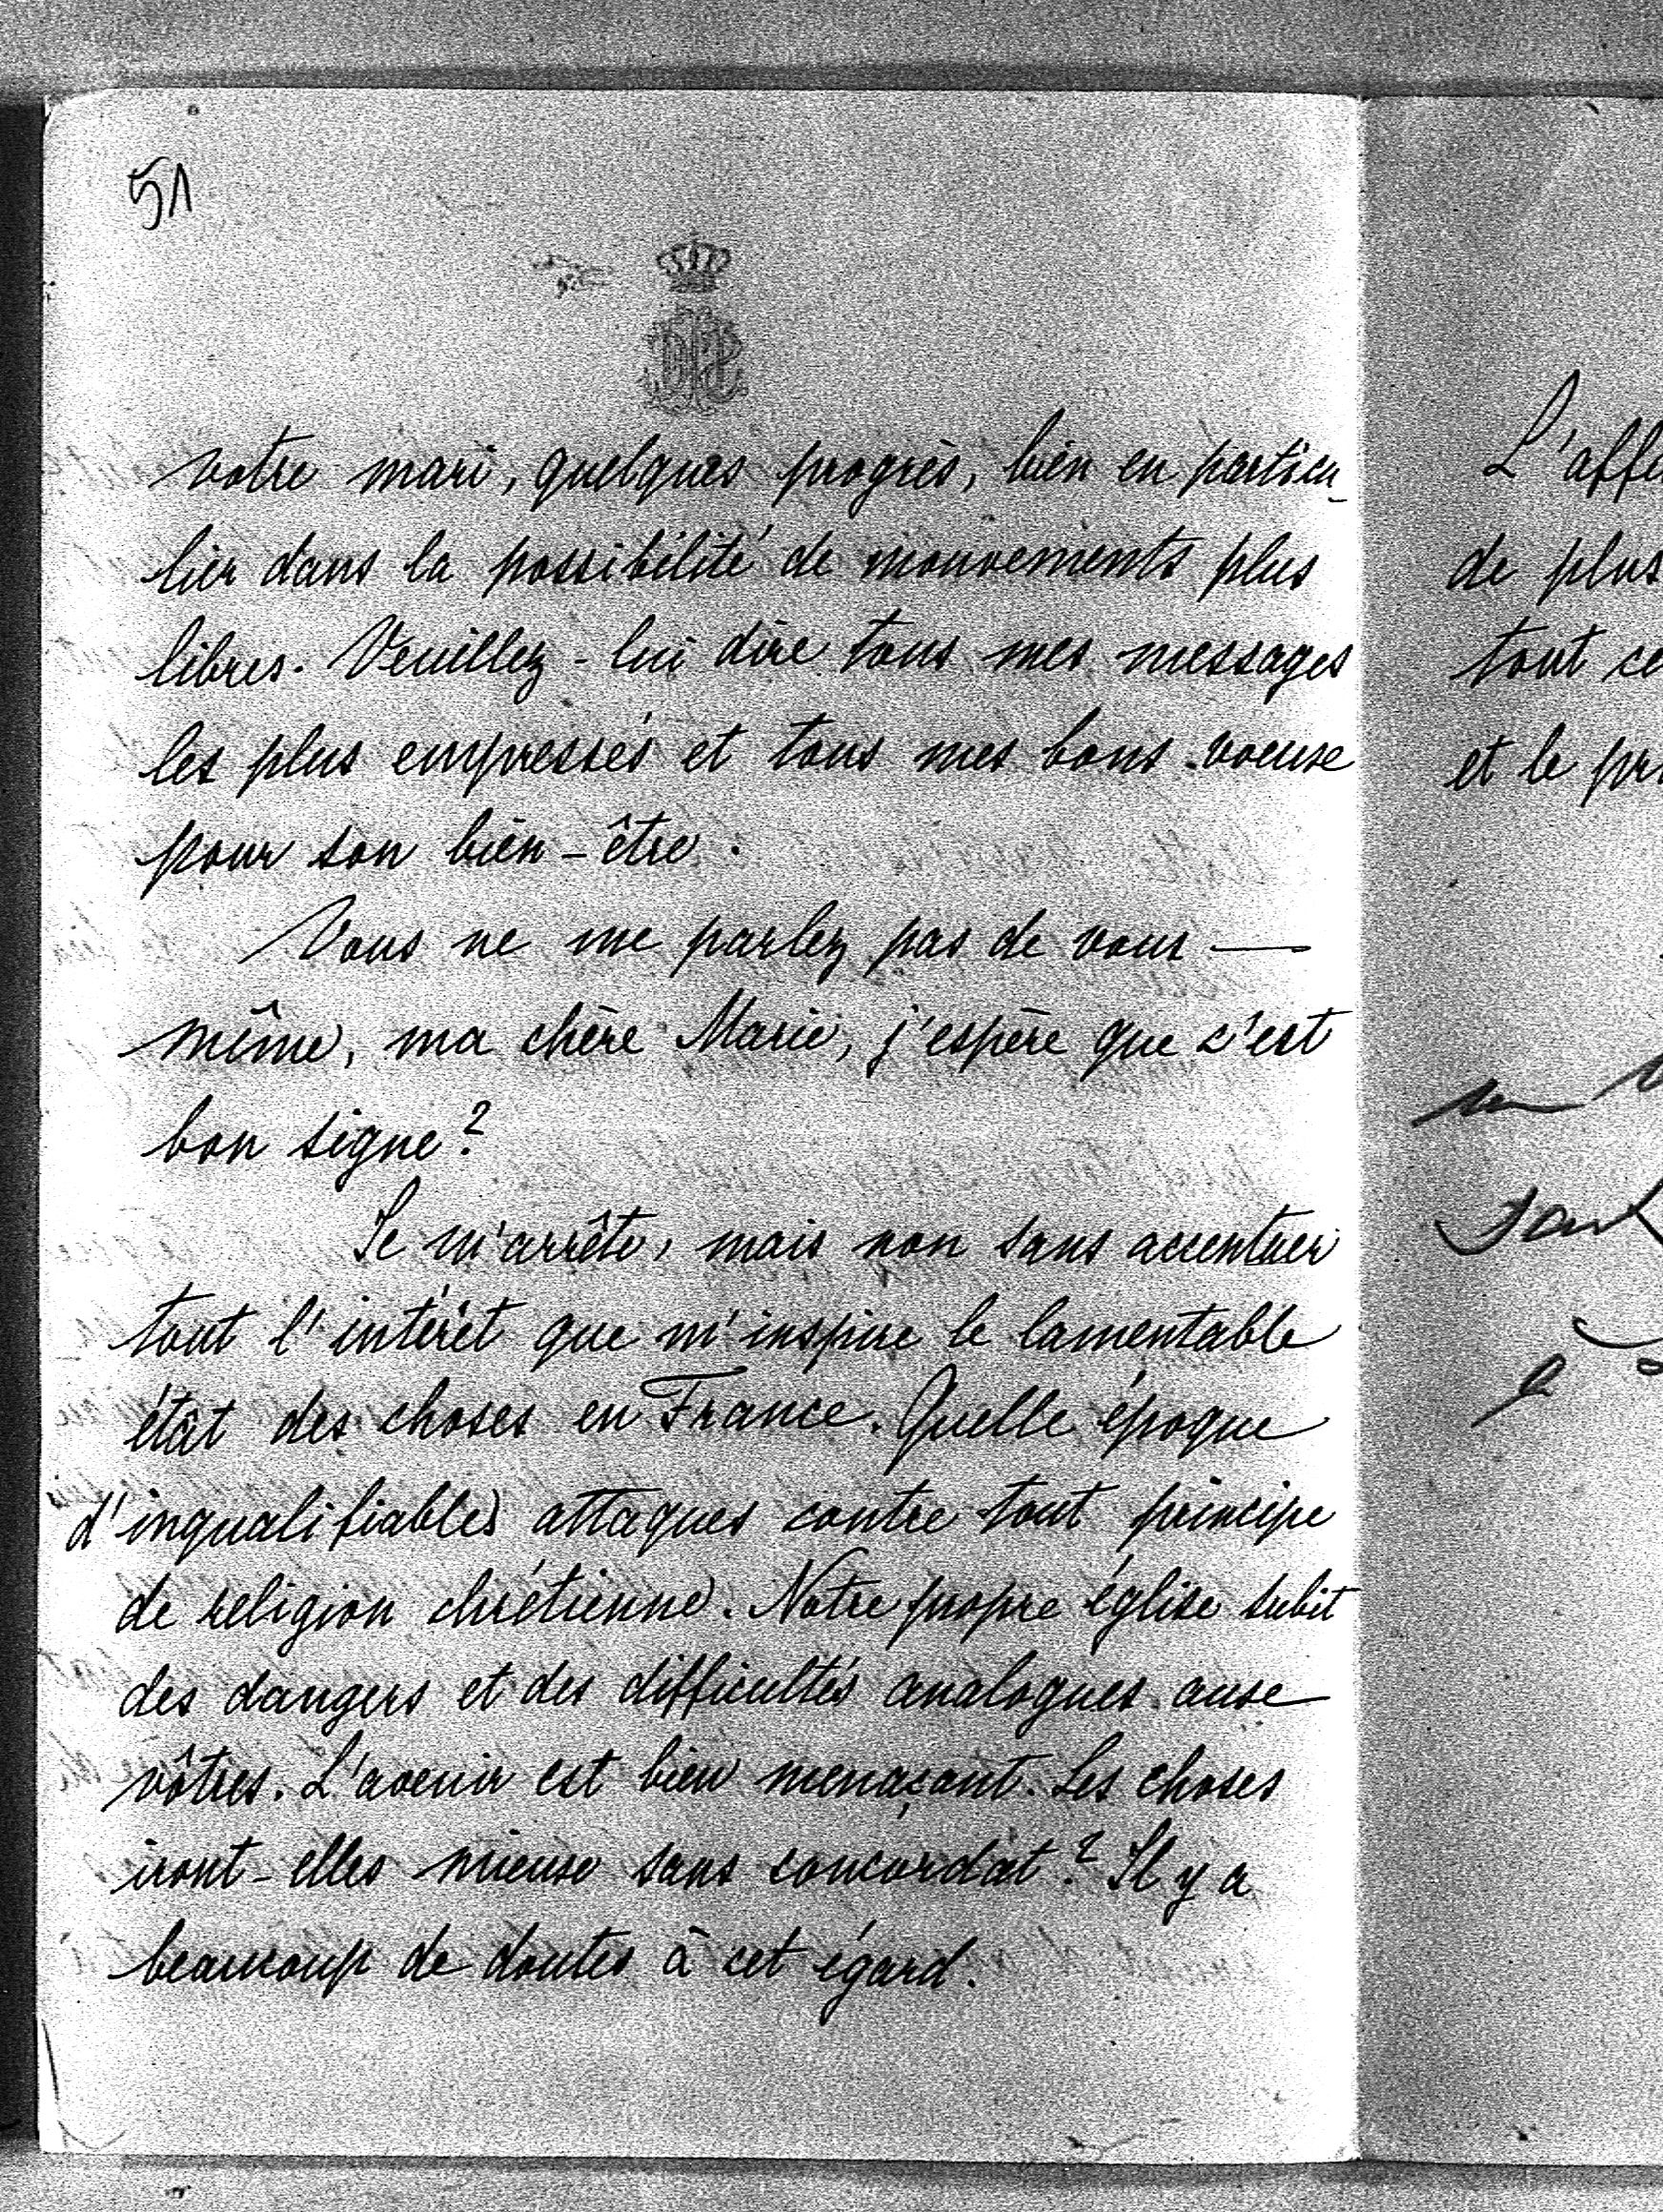 51
votre mari, quelques progrès, bien en particu-
lier dans la possibilité de mouvements plus
libres. Veuillez-lui dire tous mes messages
les plus empressés et tous mes bons voeux
pour son bien-être.
Vous ne me parlez pas de vous —
même, ma chère Marie, j'espère que c'est
bon signe?
Je m'arrête, mais non sans accentuer
tout l'intérêt que m'inspire le lamentable
étât des choses en France. Quelle époque
d'inqualifiables attaques contre tout principe
de religion chrétienne. Notre propre église subit
des dangers et des difficultés analogues aux
vôtres. L'avenir est bien menaçant. Les choses
iront-elles mieux sans concordat? Il y a
beaucoup de doutes à cet égard.
L'affe
de plus
tout ce
et le pr